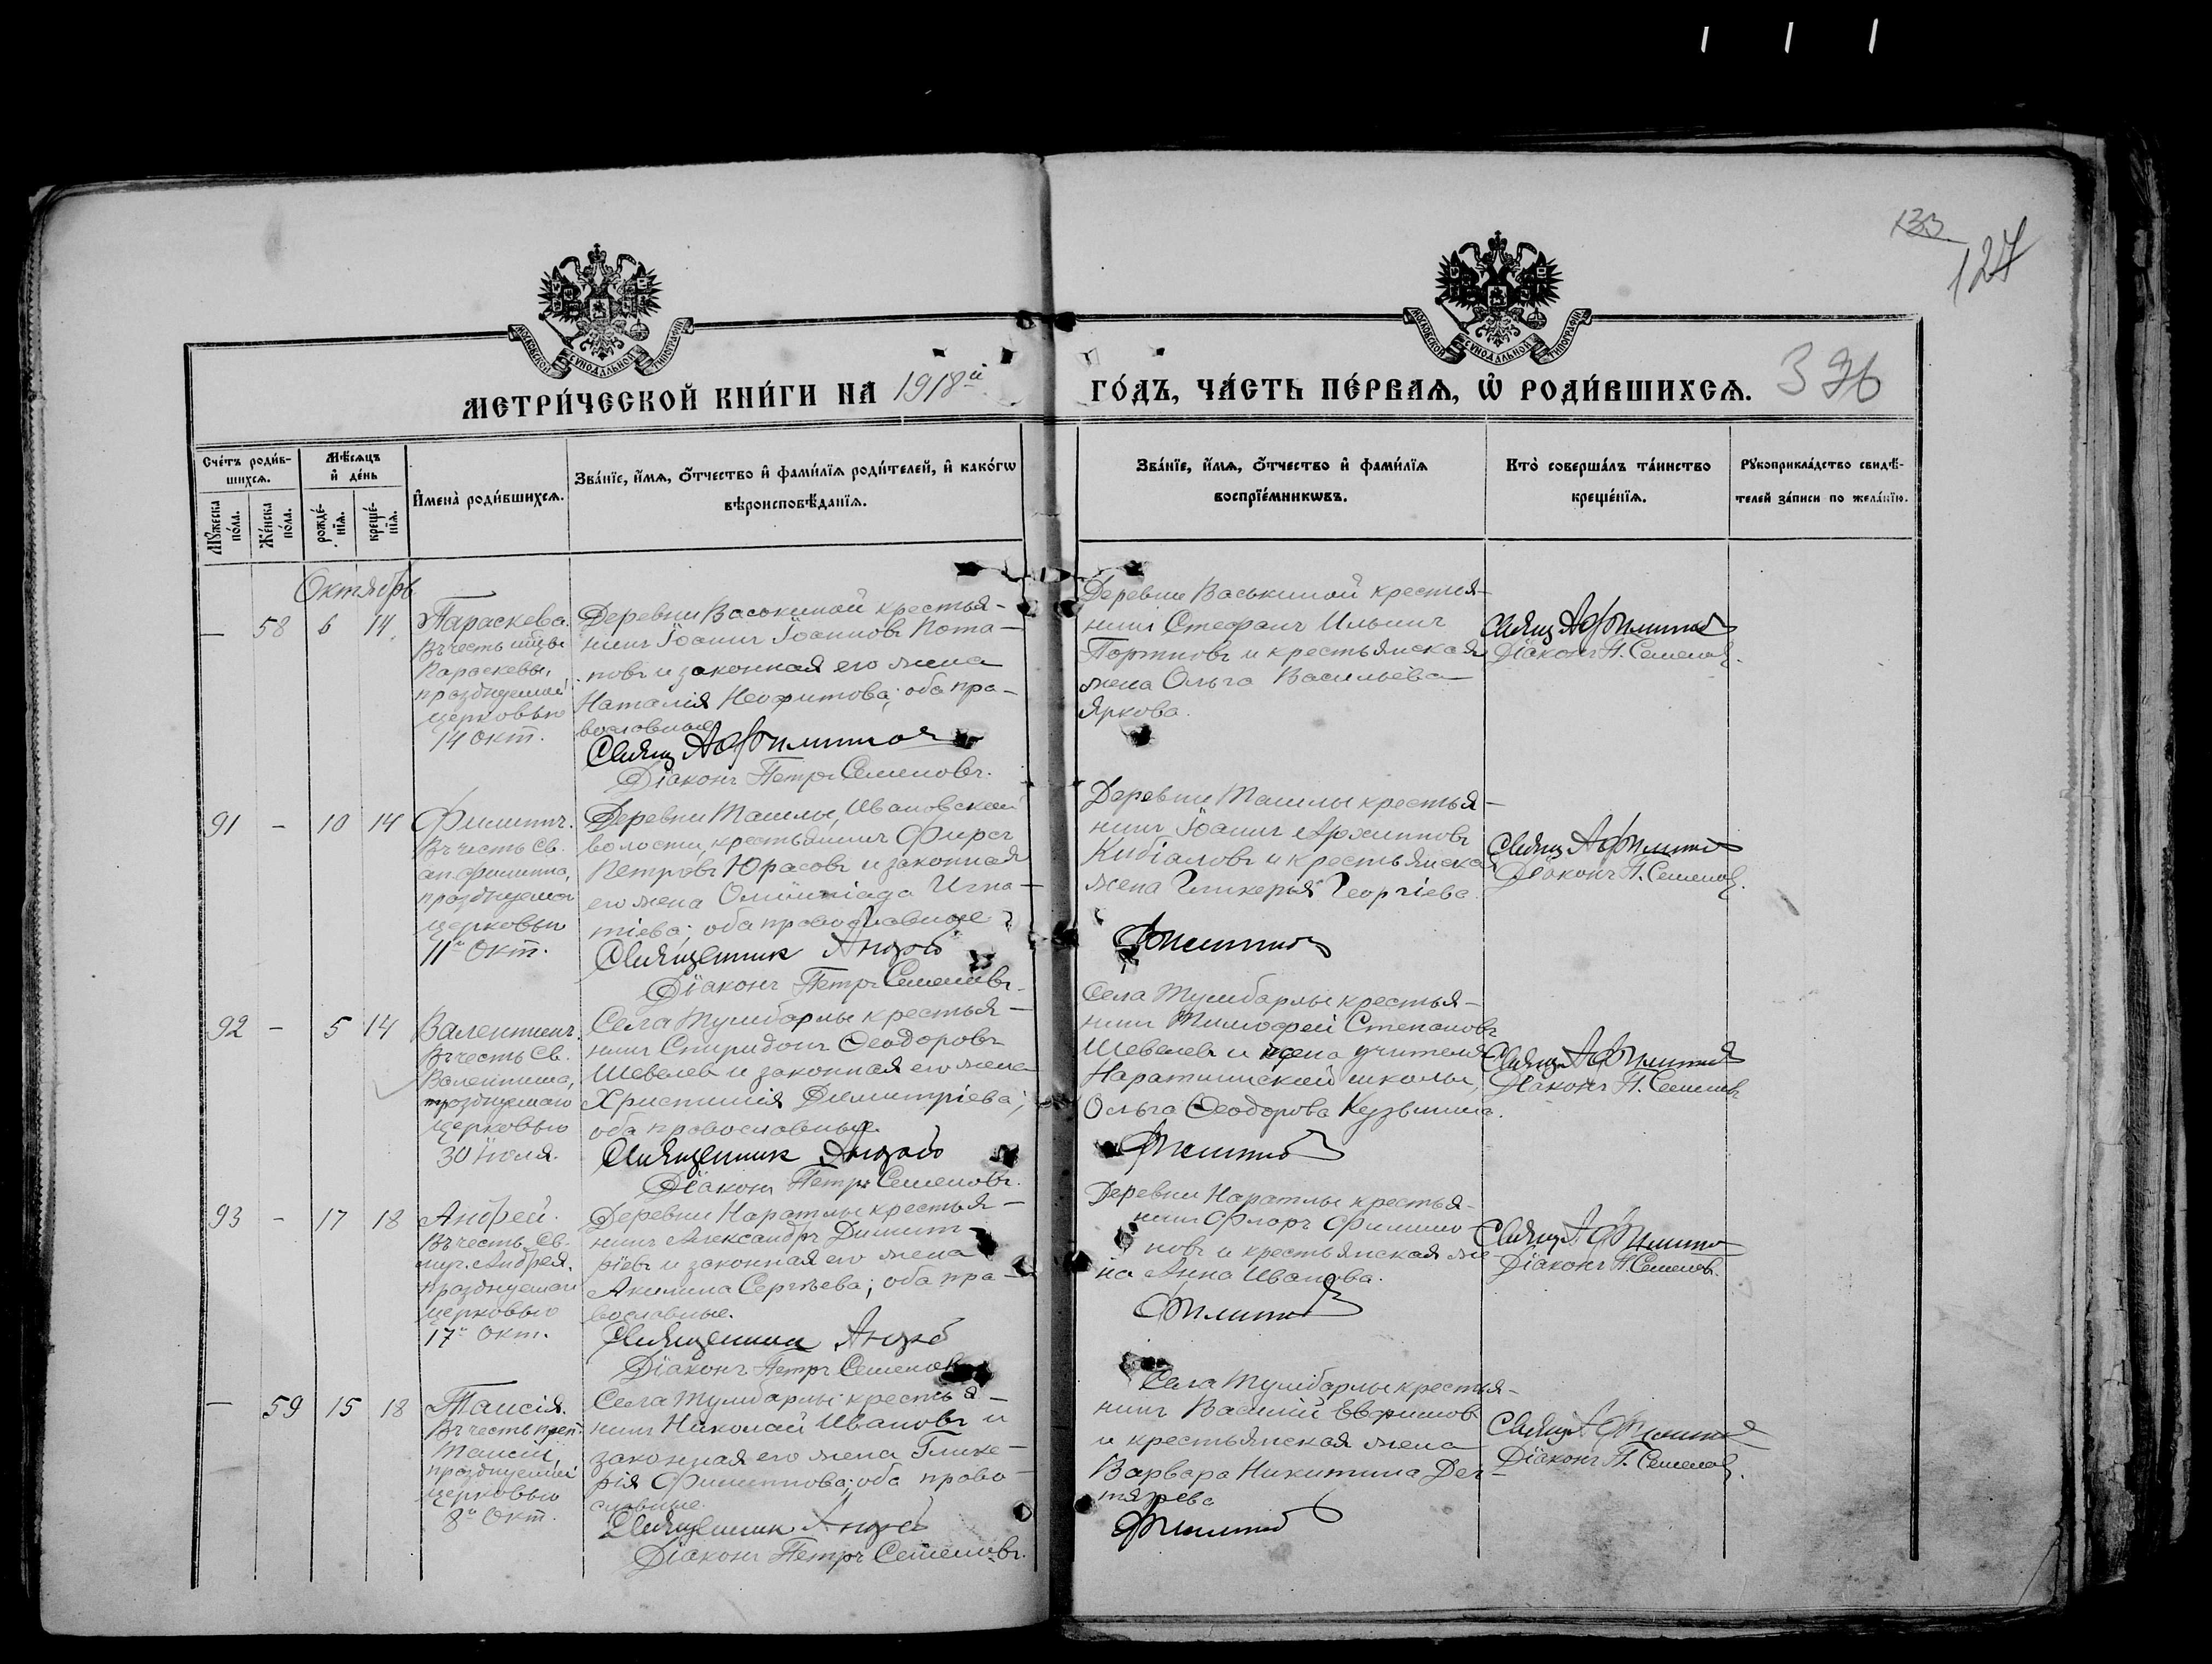 133
127
МОСКОВСКОЙ СѴНОДАЛЬНОЙ ТИПОГРАФІИ
МОСКОВСКОЙ СѴНОДАЛЬНОЙ ТИПОГРАФІИ
МЕТРИ́ЧЕСКОЙ КНИ́ГИ НА 1918й ГО́ДЪ, ЧА́СТЬ ПЕ́РВАѦ, Ѡ҆ РОДИ́ВШИХСѦ.
Сче́тъ роди́в-
шихсѧ.
Мꙋ́жеска по́ла.
Же́нска по́ла.
Мѣ́сѧцъ
и҆ де́нь
рожде́-
нїѧ.
креще́-
нїѧ.
И҆мена̀ роди́вшихсѧ.
Зва́нїе, и҆́мѧ, ѻ҆́тчество и҆ фами́лїѧ роди́телей, и҆ како́гѡ
вѣроисповѣ́данїѧ.
Зва́нїе, и҆́мѧ, ѻ҆́тчество и҆ фами́лїѧ
воспрїе́мникѡвъ.
Кто̀ соверша́лъ та́инство
креще́нїѧ.
Рꙋкоприкла́дство свидѣ́-
телей за́писи по жела́нїю.
Октябрь
— 58 6 14
Параскева.
Въ честь мцы
Параскевы,
празднуемой
церковью
14 окт.
Деревни Васькиной крестья-
нинъ Іоаннъ Іоанновъ Пота-
повъ и законная его жена
Наталія Неофитова; оба пра-
вославные
Діаконъ Петръ Семеновъ.
Деревни Васькиной крестья-
нинъ Стефанъ Ильинъ
Портновъ и крестьянская
жена Ольга Васильева
Яркова.
Діаконъ П. Семеновъ.
91 – 10 14
Филиппъ.
Въ честь св.
ап. Филиппа,
празднуемаго
церковью
11го окт.
Деревни Ташлы, Ивановской
волости, крестьянинъ Фирсъ
Петровъ Юрасовъ и законная
его жена Олимпіада Игна-
тіева; оба православные
Священникъ Андрей
Діаконъ Петръ Семеновъ.
Деревни Ташлы крестья-
нинъ Іоаннъ Архиповъ
и крестьянская
жена Гликерья Георгіева.
Филиппов
Діаконъ П. Семеновъ.
92 – 5 14
Валентинъ.
Въ честь св.
Валентина,
празднуемаго
церковью
30 іюля.
Села Тумбарлы крестья-
нинъ Спиридонъ Ѳеодоровъ
Шевелевъ и законная его жена
Христинія Димитріева;
оба православные.
Священникъ Андрей
Діаконъ Петръ Семеновъ.
Села Тумбарлы крестья-
нинъ Тимофей Степановъ
Шевелевъ и жена учителя
Наратлинской школы,
Ольга Ѳеодорова Кузьмина.
Филиппов
Діаконъ П. Семеновъ
93 – 17 18
Андрей.
Въ честь св.
муч. Андрея,
празднуемаго
церковью
17го окт.
Деревни Наратлы крестья-
нинъ Александръ Димит-
ріевъ и законная его жена
Акилина Сергѣева; оба пра-
вославные.
Священникъ Андрей
Діаконъ Петръ Семеновъ
Деревни Наратлы крестья-
нинъ Флоръ Филиппо-
повъ и крестьянская же-
на Анна Иванова.
Филиппов
Діаконъ П. Семеновъ.
— 59 15 18
Таисія.
Въ честь преп.
Таисіи,
празднуемой
церковью
8го окт.
Села Тумбарлы крестья-
нинъ Николай Ивановъ и
законная его жена Глике-
рія Филиппова; оба право-
славные.
Священникъ Андрей
Діаконъ Петръ Семеновъ.
Села Тумбарлы крестья-
нинъ Василій Евфимовъ
и крестьянская жена
Варвара Никитина Дег-
тярева
Филиппов
Діаконъ П. Семеновъ.